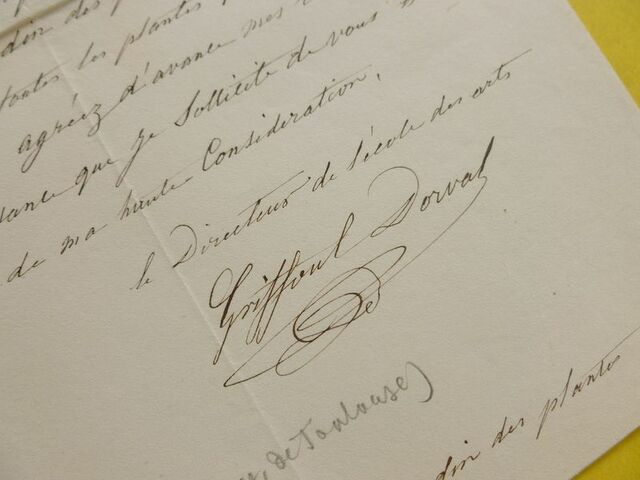 din des
toutes les plantes
agréez d'avance mes
que je sollicite de vous
de ma haute Considération,
le Directeur de l'école des arts
Griffoul Dorval
de Toulouse)
din des plantes